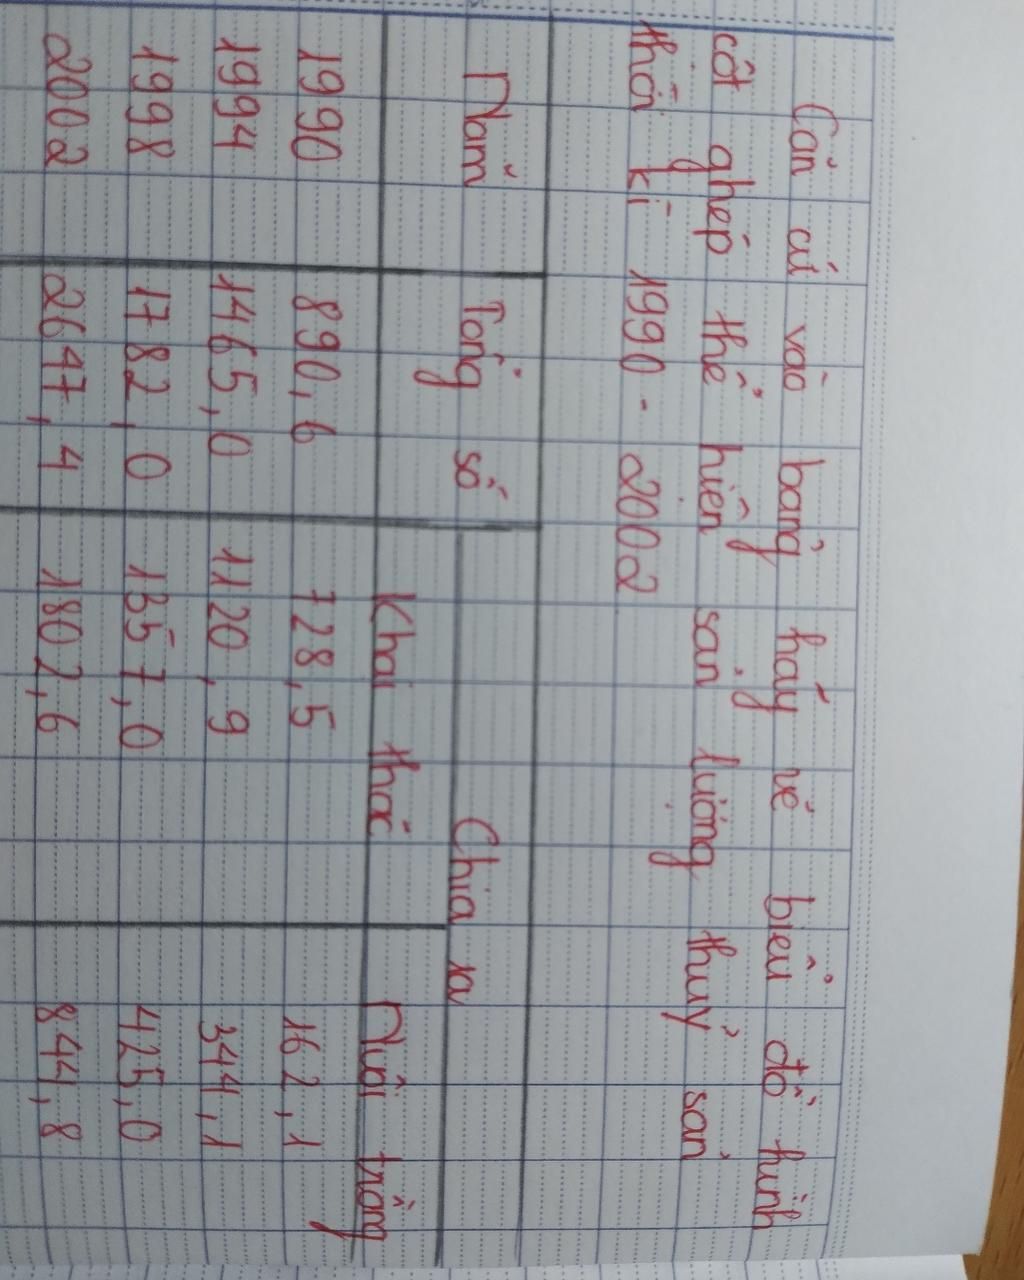 Căn cứ vào bảng hãy vẽ biểu đồ hình
cột ghép thể hiện sản lượng thuỷ sản
thời kì 1990 - 2002
Năm Tổng số Chia ra
Khai thác Nuôi trồng
1990 890,6 728,5 162,1
1994 1465,0 1120,9 344,1
1998 1782,0 1357,0 425,0
2002 2647,4 1802,6 844,8